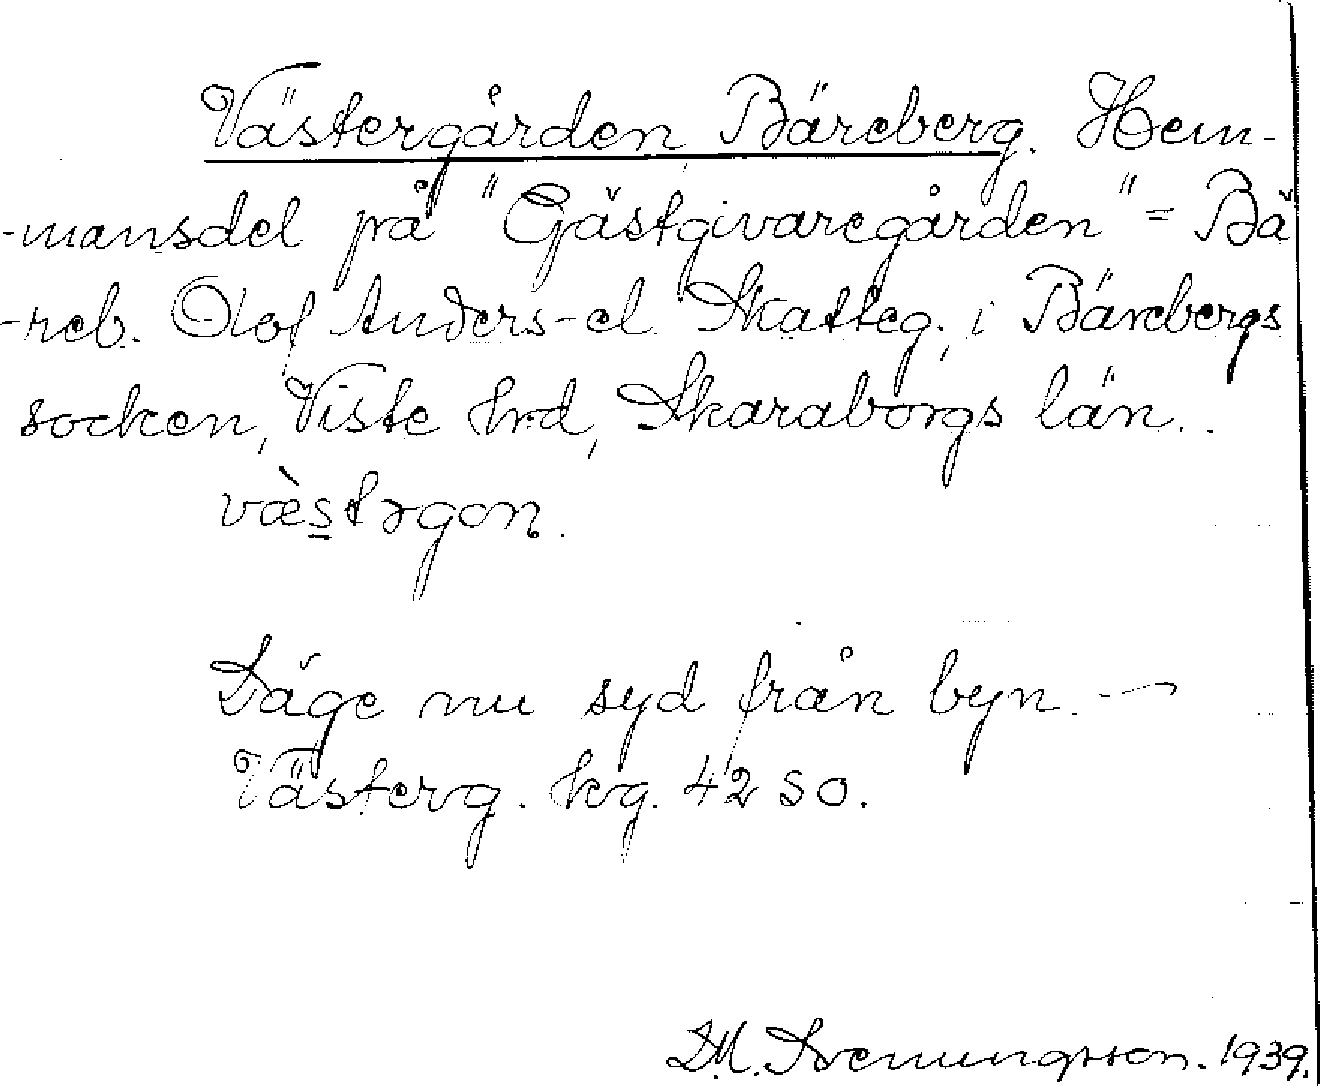 Västergården Bäreberg. Hem-
-mansdel på "Gästgivaregården" = Bä
-reb. Olof Anders- el Skatteg., i Bärebergs
socken, Viste hrd, Skaraborgs län.
væ̀stərgɑn.
Läge nu syd från byn. -
Västerg. kg. 42 SO.
1939.